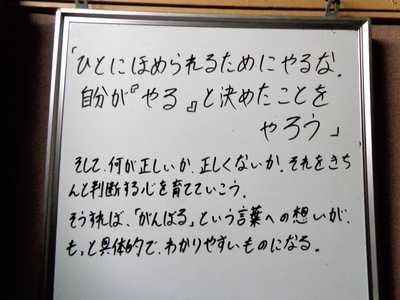 「ひとにほめられるためにやるな.
自分が『やる』と決めたことを
やろう」
そして、何が正しいか、正しくないか、それをきち
んと判断する心を育てていこう。
そうすれば、「がんばる」という言葉への想いが、
もっと具体的で、わかりやすいものになる。